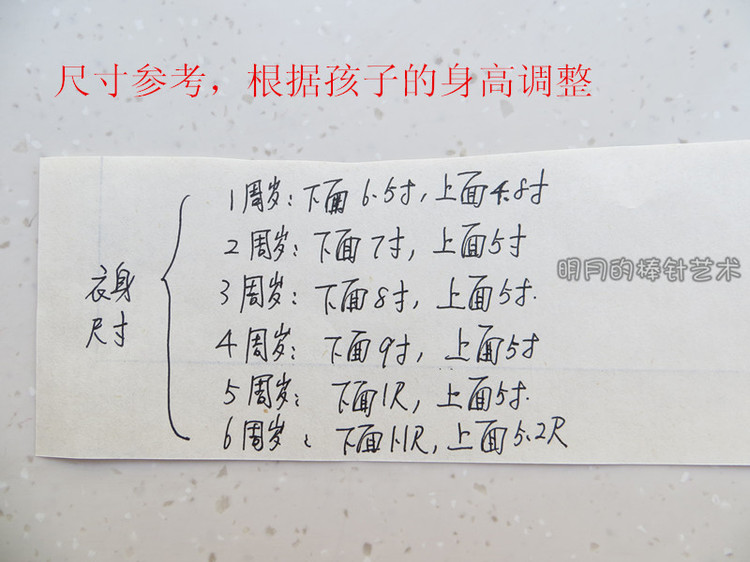 尺寸参考，根据孩子的身高调整
1周岁：下面6.5寸，上面4.8寸
2周岁：下面7寸，上面5寸
明月的棒针艺术
3周岁：下面8寸，上面5寸.
衣身
尺寸
4周岁：下面9寸，上面5寸
5周岁：下面1尺，上面5寸.
6周岁：下面1.1尺，上面5.2尺